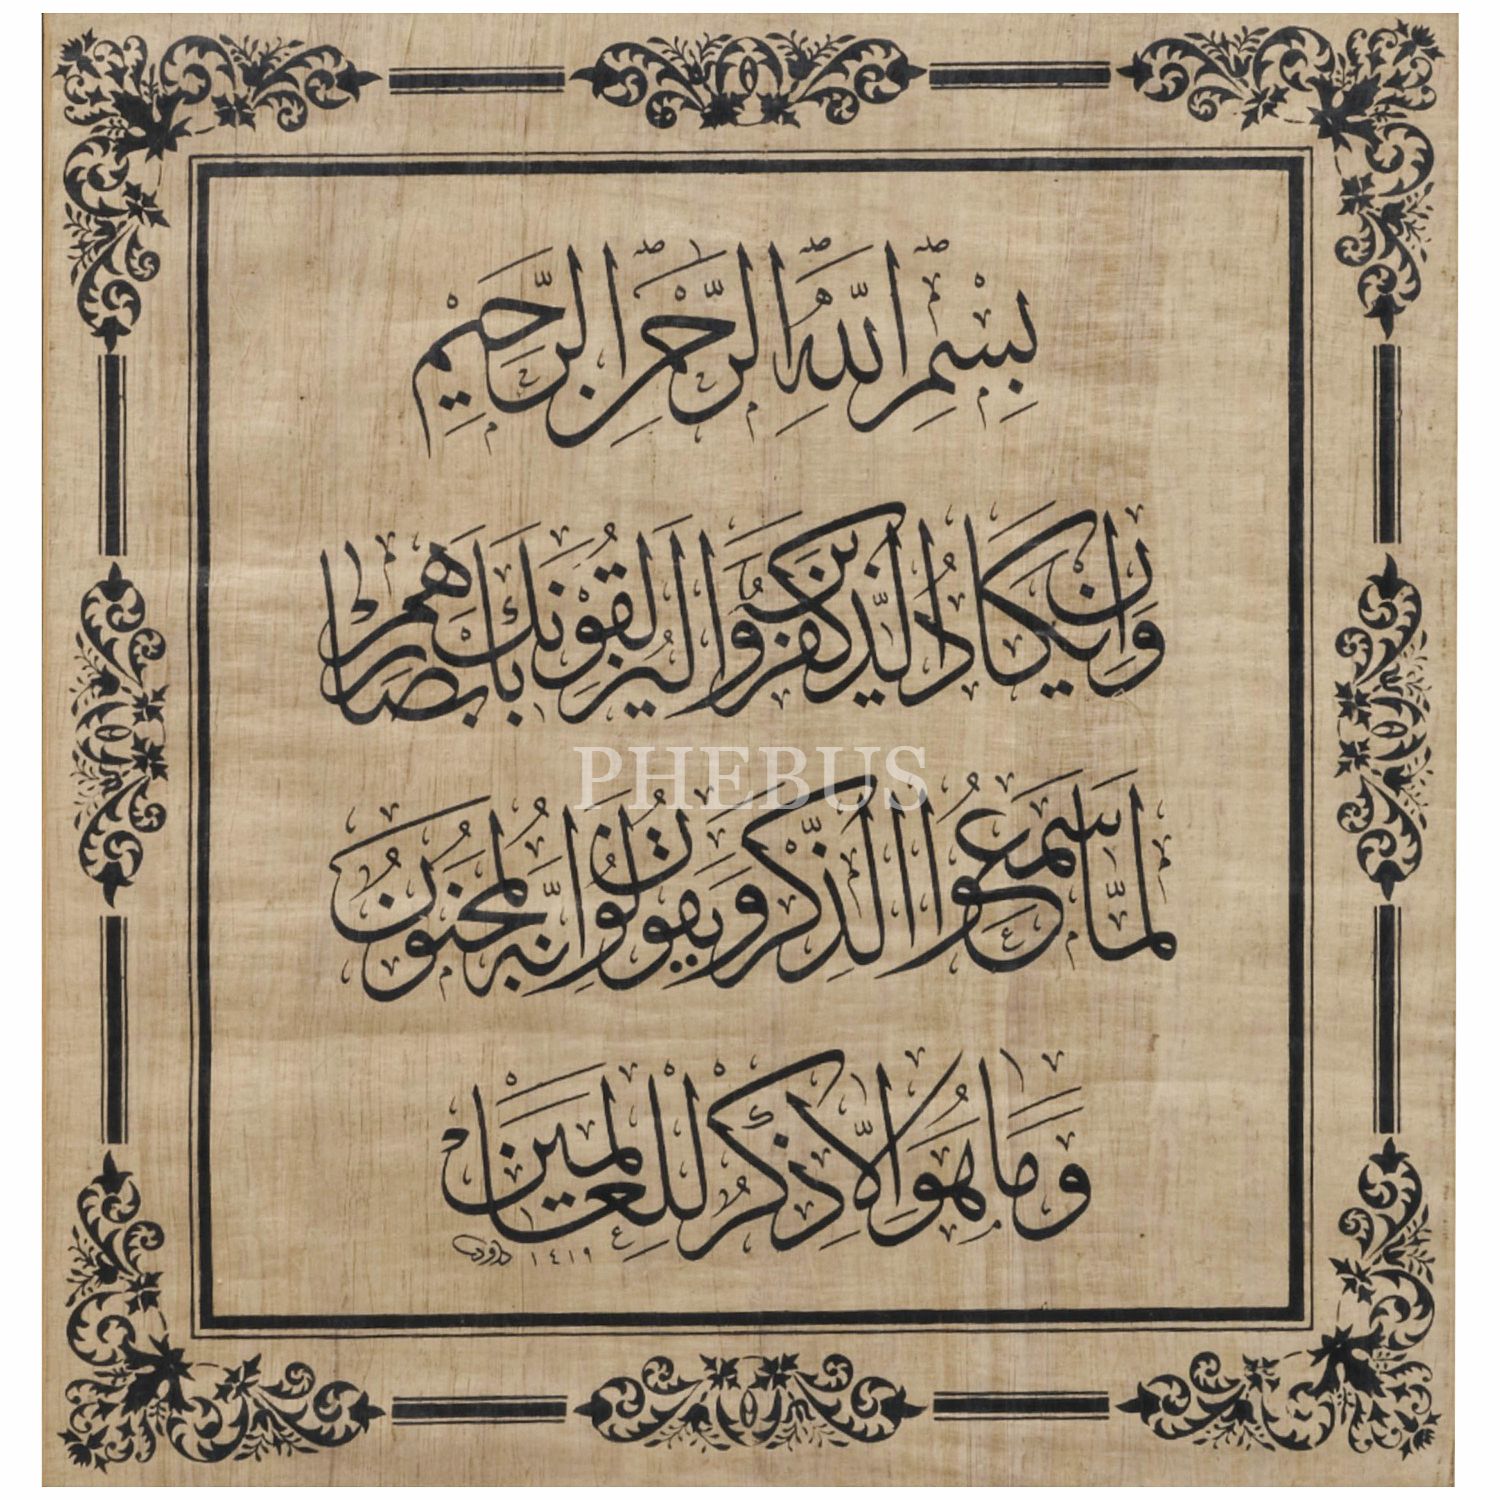 بِسْمِ اللَّهِ الرَّحْمٰنِ الرَّحِيمِ
وَإِنْ يَكَادُ الَّذِينَ كَفَرُوا لَيُزْلِقُونَكَ بِأَبْصَارِهِمْ
PHEBUS
لَمَّا سَمِعُوا الذِّكْرَ وَيَقُولُونَ إِنَّهُ لَمَجْنُونٌ
وَمَا هُوَ إِلَّا ذِكْرٌ لِلْعَالَمِينَ
داود ١٤١٩